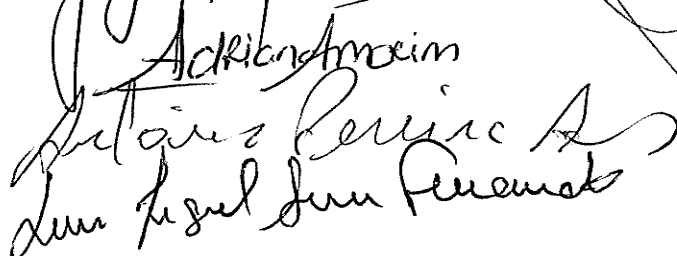 Adriana Amorim
António Pereira
Luis Miguel Fernando